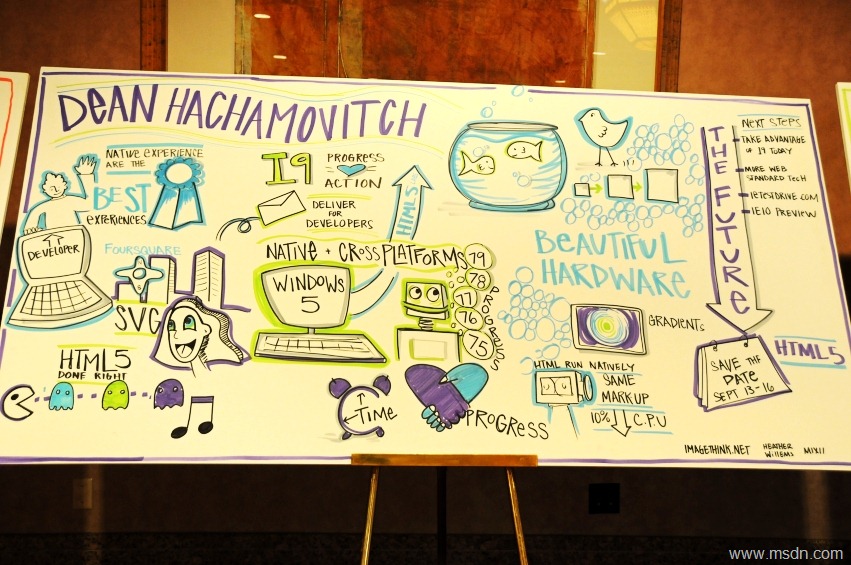 DEAN HACHAMOVITCH
NATIVE EXPERIENCE
ARE THE
BEST
EXPERIENCES
DEVELOPER
FOURSQUARE
SVG
HTML5
DONE RIGHT
I9
PROGRESS
ACTION
DELIVER
FOR
DEVELOPERS
HTML5
NATIVE + CROSS PLATFORMS
WINDOWS
5
79
78
77
76
75
PROGRESS
TIME
PROGRESS
BEAUTIFUL
HARDWARE
GRADIENTS
HTML RUN NATIVELY
SAME
MARKUP
10% C.P.U
THE FUTURE
NEXT STEPS
TAKE ADVANTAGE
OF I9 TODAY
MORE WEB
STANDARD TECH
IETESTDRIVE.COM
IE10 PREVIEW
SAVE THE
DATE
SEPT 13-16
HTML5
IMAGETHINK.NET
HEATHER
WILLEMS
MIX11
www.msdn.com